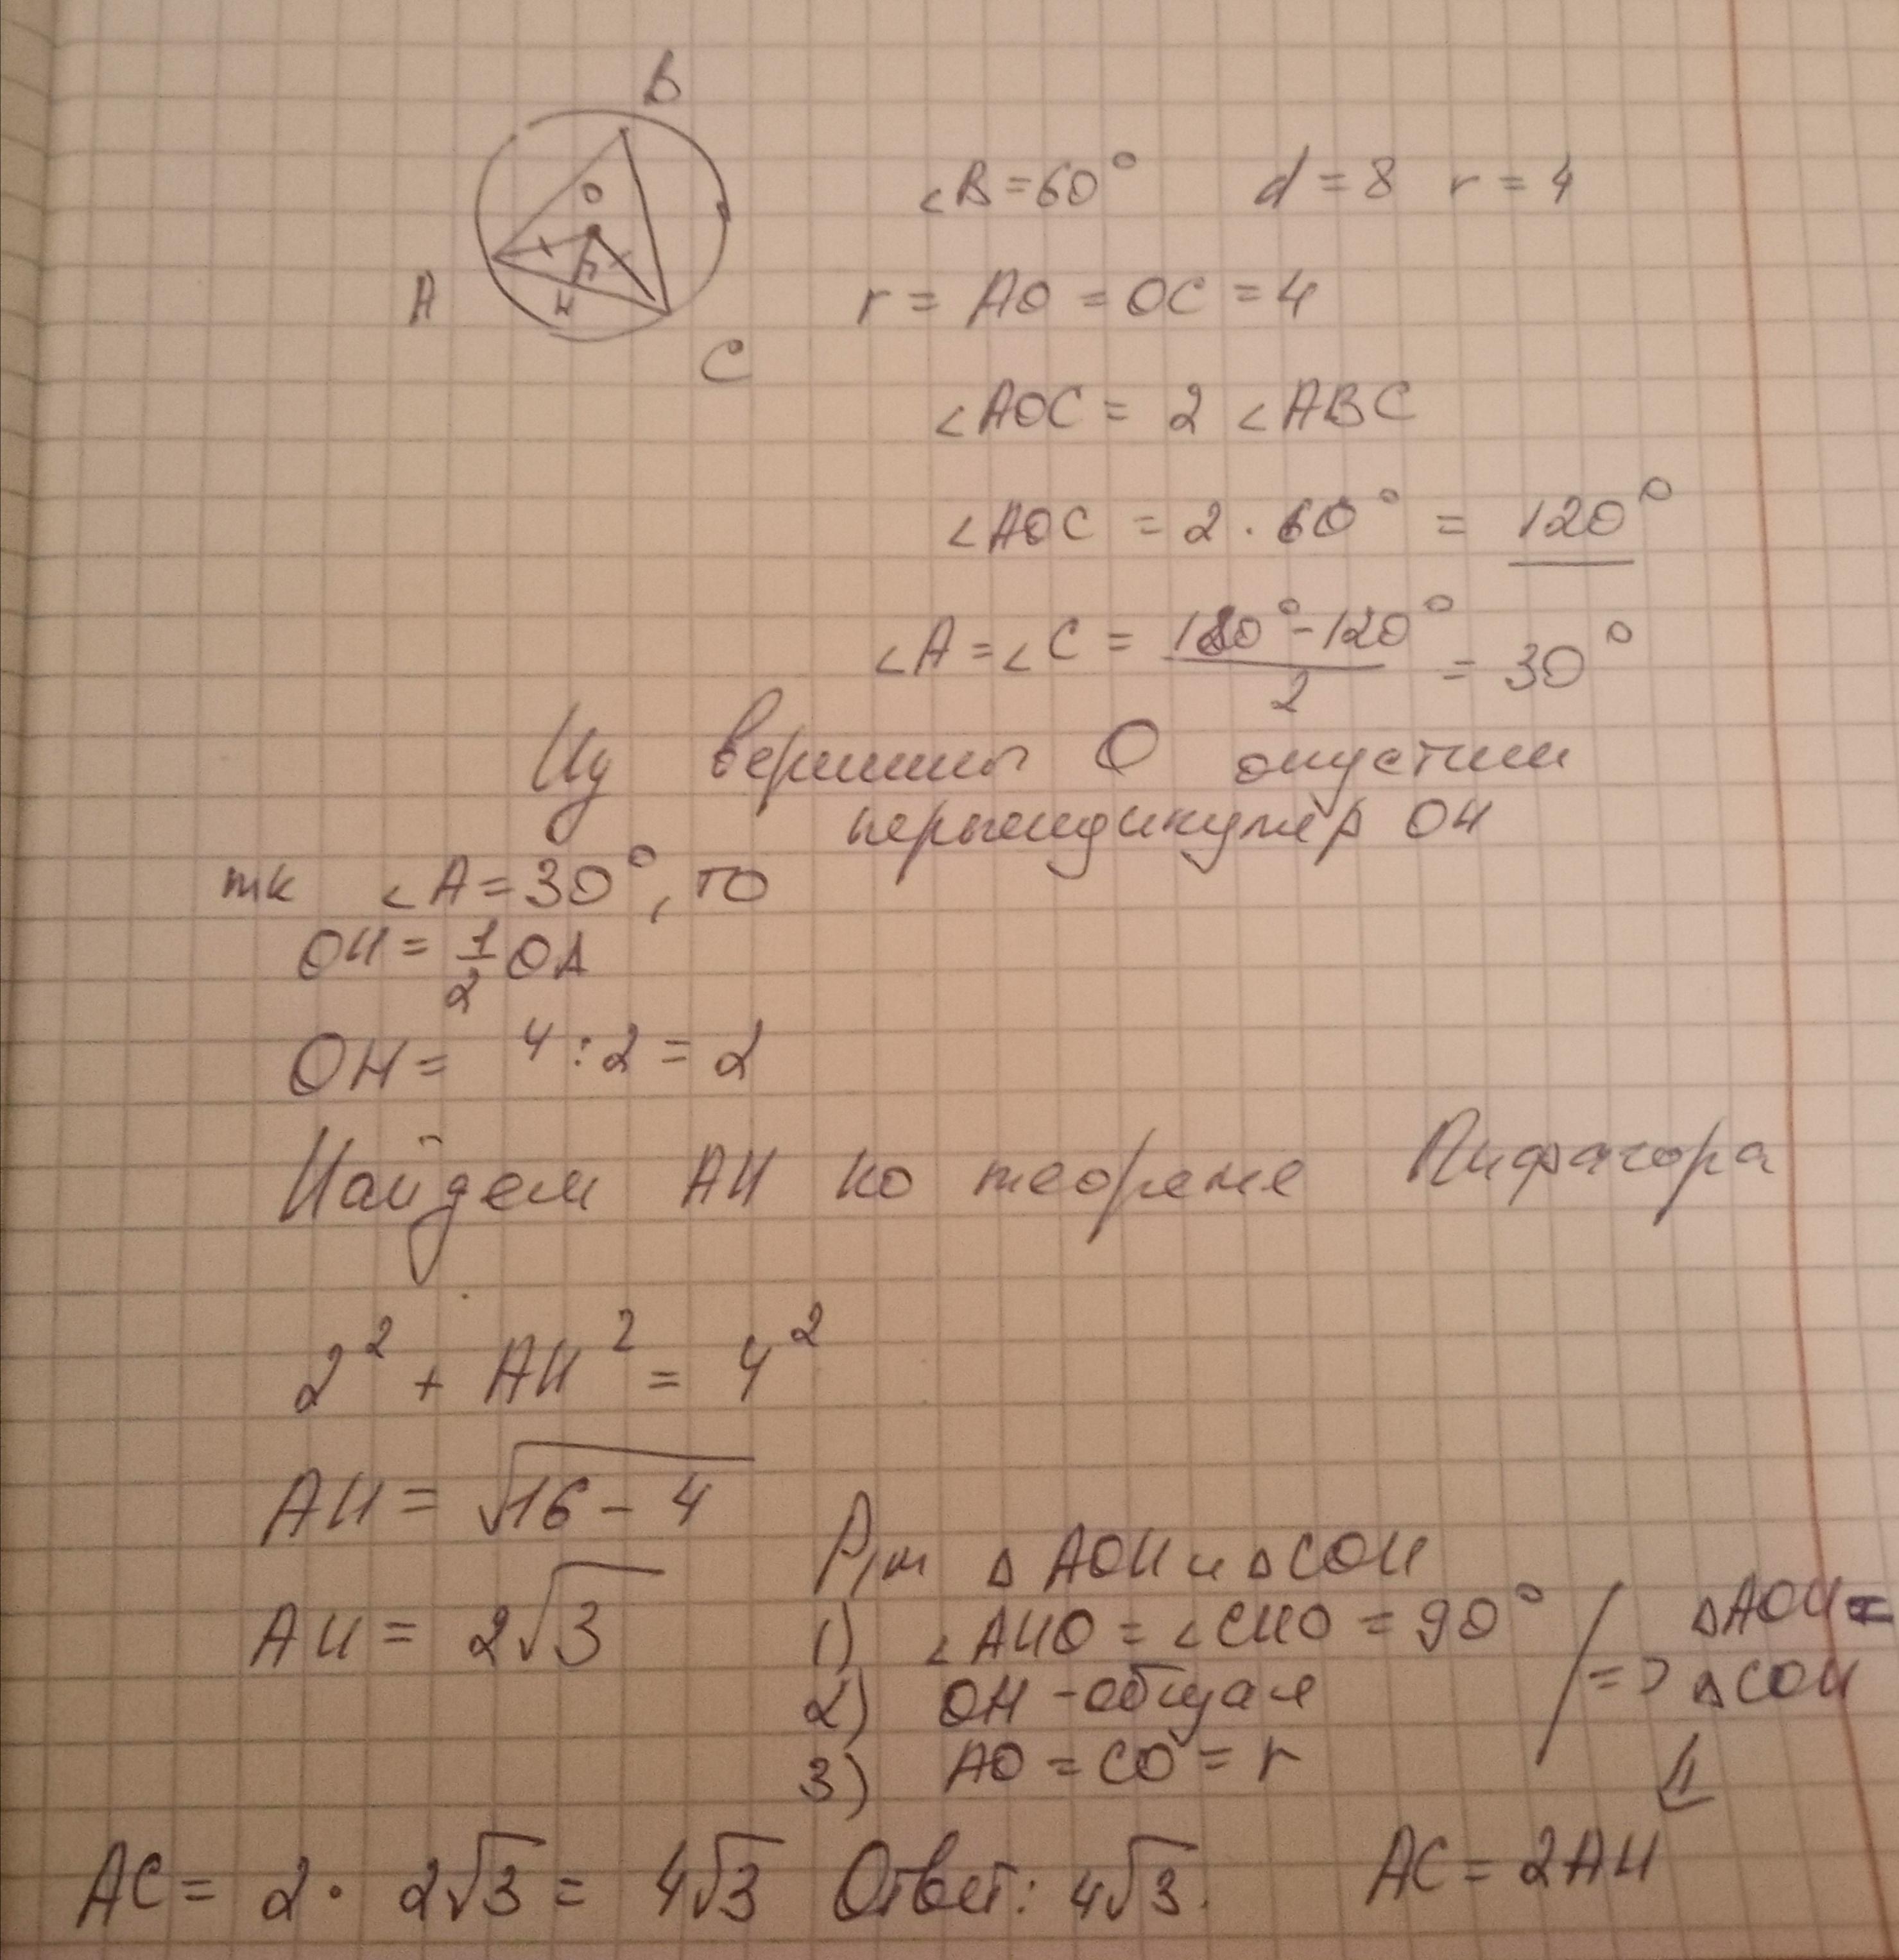 B
O
A
H
C
∠B = 60° d = 8 r = 4
r = AO = OC = 4
∠AOC = 2 ∠ABC
∠AOC = 2 · 60° = 120°
∠A = ∠C = (180° - 120°)/2 = 30°
Из вершины О опустим
перпендикуляр ОН
тк ∠A = 30°, то
OH = 1/2 OA
OH = 4 : 2 = 2
Найдем АН по теореме Пифагора
2² + AH² = 4²
AH = √(16 - 4)
AH = 2√3
Р/м △AOH и △COH
1) ∠AHO = ∠CHO = 90°
2) OH - общая
3) AO = CO = r
=> △AOH = △COH
⇓
AC = 2AH
AC = 2 · 2√3 = 4√3 Ответ: 4√3.